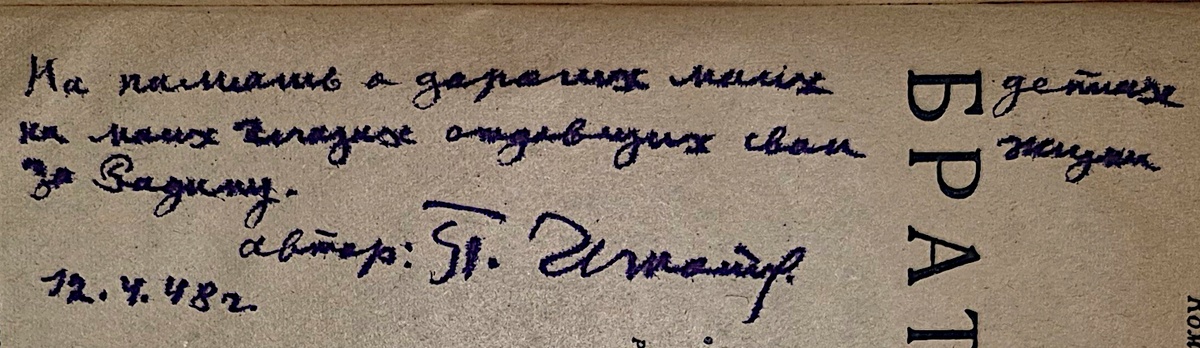 На память о дорогих моих детках
на моих глазах отдавших свои жизни
за Родину.
автор: П. Игнатов
12.4.48 г.
БРАТ